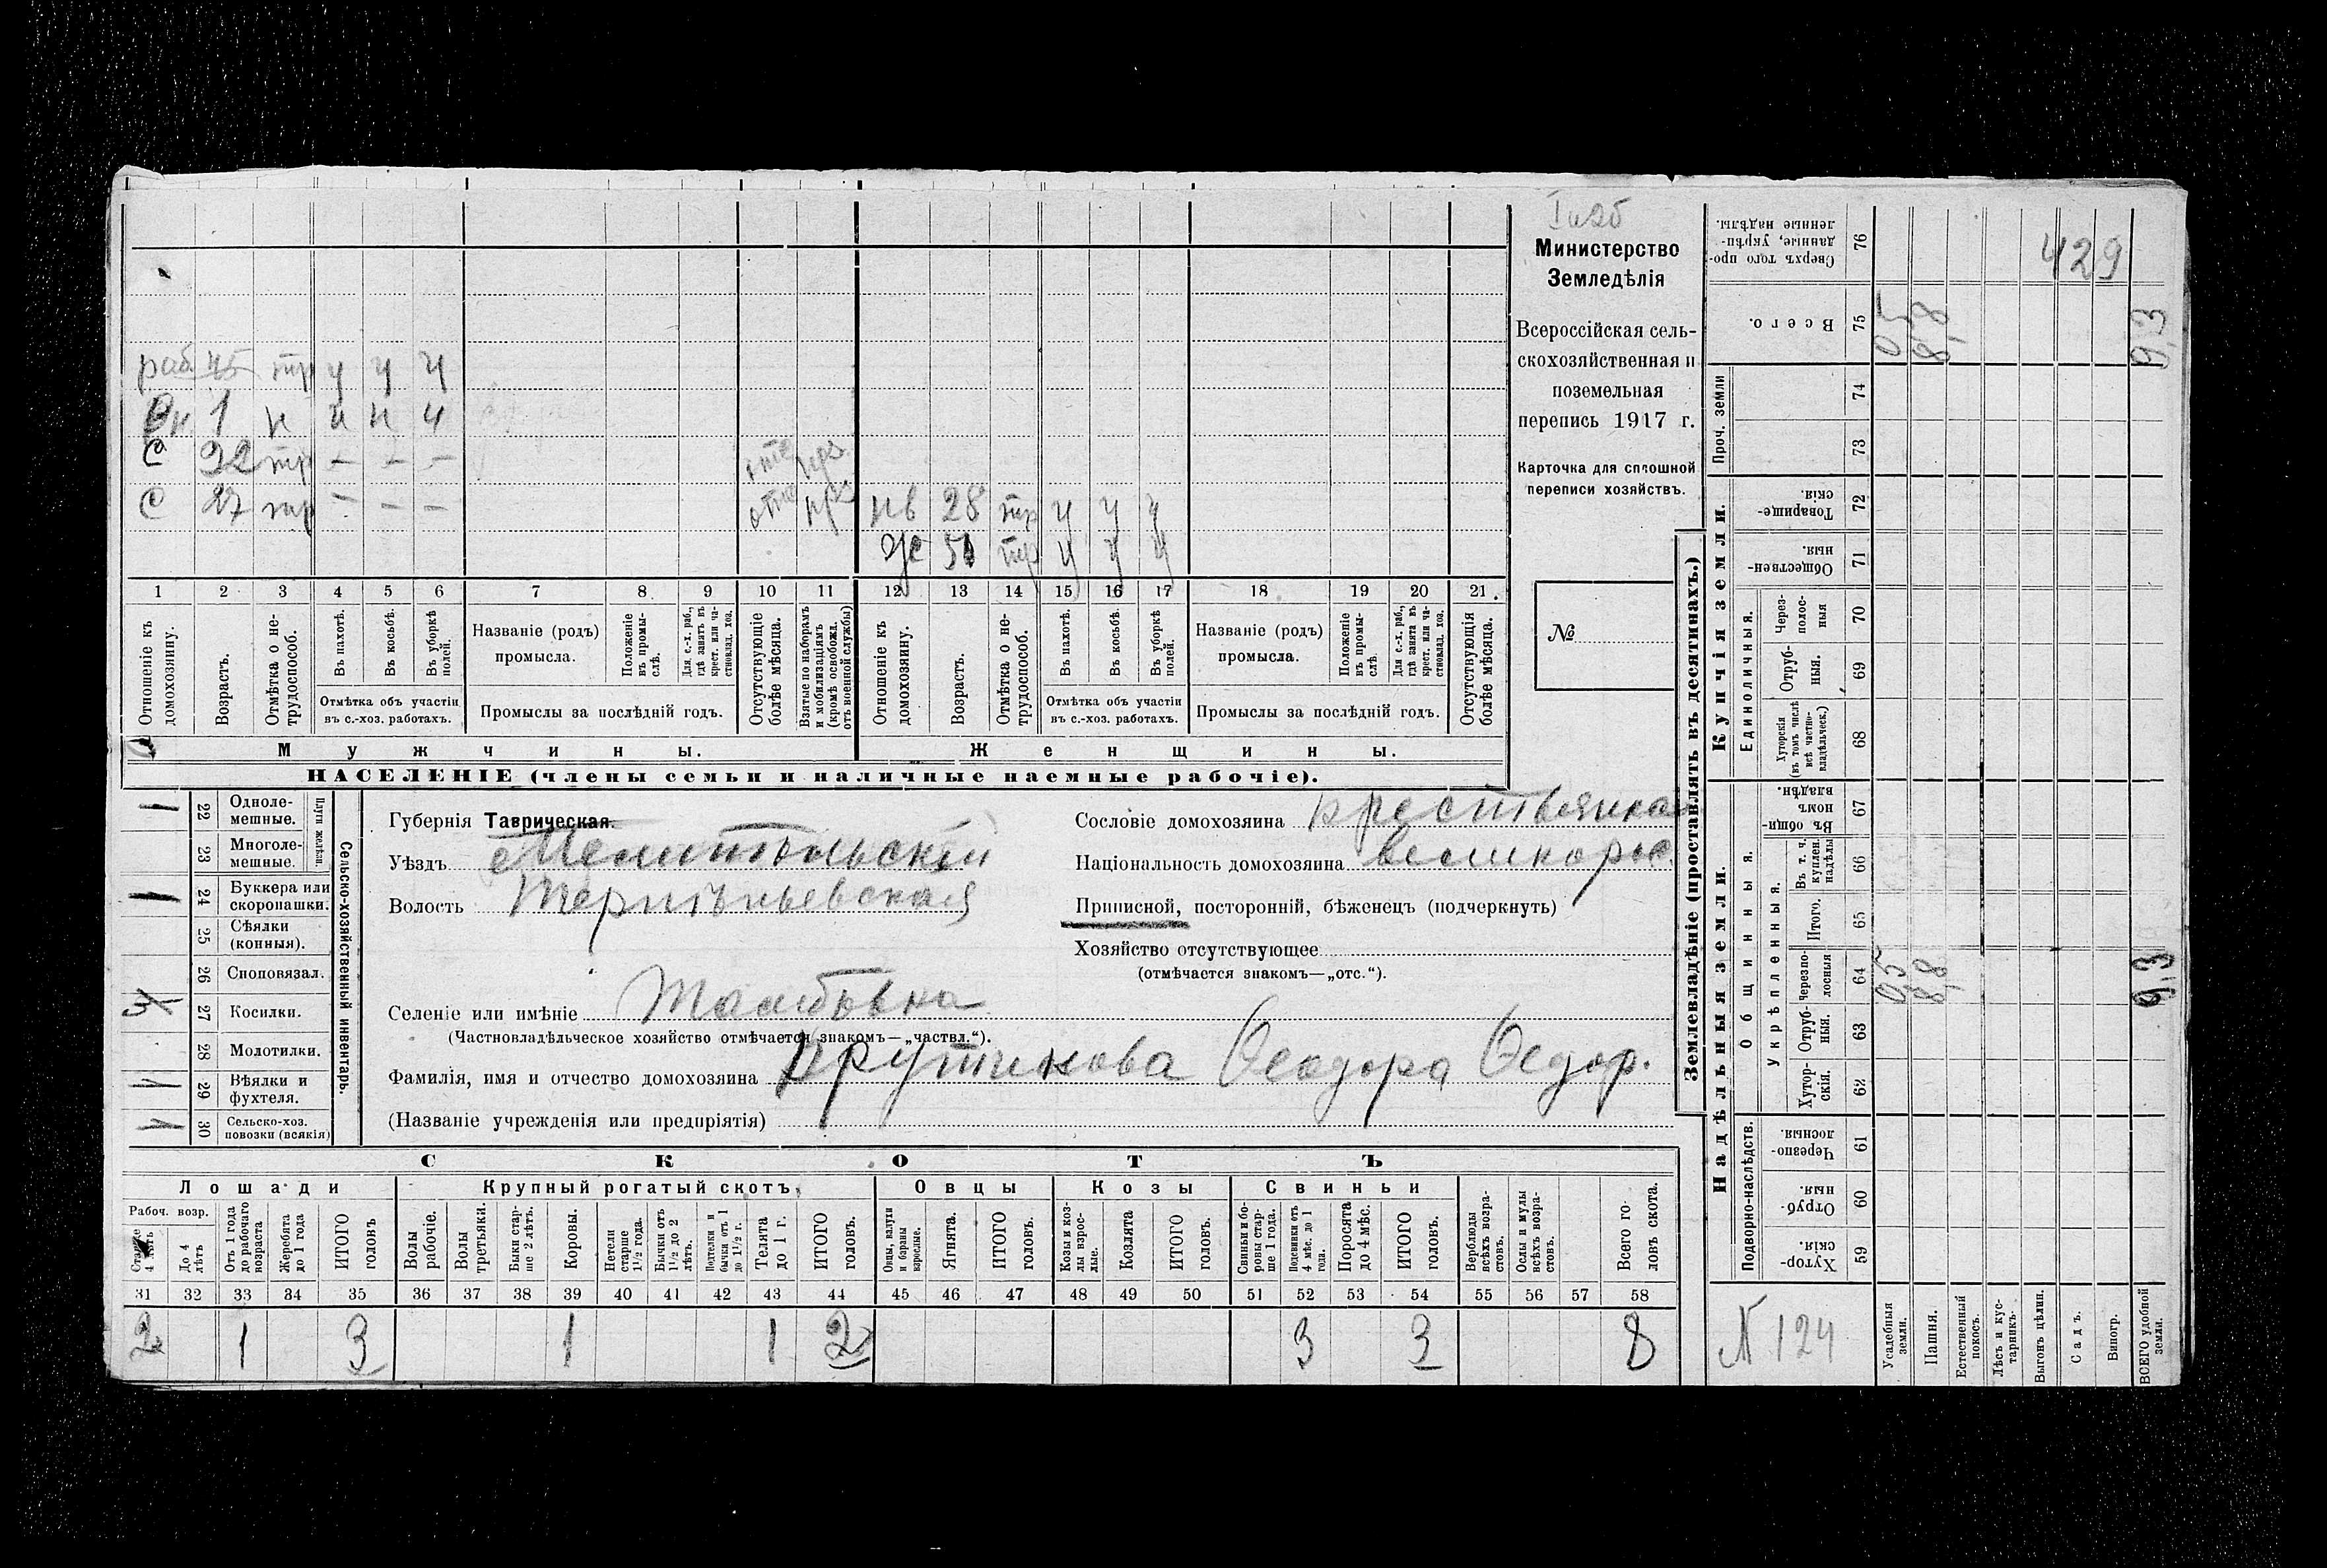 429
Министерство
Земледѣлія
Всероссійская сель-
скохозяйственная и
поземельная
перепись 1917 г.
Карточка для сплошной
переписи хозяйствъ.
№
раб. 45 тр у у у
Вн 1 н н н н
С 22 тр — — —
С 27 тр — — —
нв 28 тр у у у
же 51 тр у у у
1 2 3 4 5 6 7 8 9 10 11 12 13 14 15 16 17 18 19 20 21
Отношеніе къ домохозяину.
Возрастъ.
Отмѣтка о не-трудоспособ.
Въ пахотѣ.
Въ косьбѣ.
Въ уборкѣ полей.
Отмѣтка объ участіи въ с.-хоз. работахъ.
Названіе (родъ) промысла.
Положеніе въ промы-слѣ.
Для с.-х. раб., гдѣ занятъ въ крест. или ча-стновлад. хоз.
Промыслы за послѣдній годъ.
Отсутствующіе болѣе мѣсяца.
Взятые по наборамъ и мобилизаціямъ (кромѣ освобожд. отъ военной службы)
Отношеніе къ домохозяину.
Возрастъ.
Отмѣтка о не-трудоспособ.
Въ пахотѣ.
Въ косьбѣ.
Въ уборкѣ полей.
Отмѣтка объ участіи въ с.-хоз. работахъ.
Названіе (родъ) промысла.
Положеніе въ промы-слѣ.
Для с.-х. раб., гдѣ занята въ крест. или ча-стновлад. хоз.
Промыслы за послѣдній годъ.
Отсутствующія болѣе мѣсяца.
Мужчины.
Женщины.
НАСЕЛЕНІЕ (члены семьи и наличные наемные рабочіе).
Сельско-хозяйственный инвентарь.
Плуги желѣзн.
1 22 Одноле-мешные.
23 Многоле-мешные.
1 24 Буккера или скоропашки.
25 Сѣялки (конныя).
26 Сноповязал.
27 Косилки.
28 Молотилки.
1 29 Вѣялки и фухтеля.
1 30 Сельско-хоз. повозки (всякія)
Губернія Таврическая.
Уѣздъ Мелитопольскій
Волость Терпѣньевская
Селеніе или имѣніе Тамбовка
(Частновладѣльческое хозяйство отмѣчается знакомъ—„частвл.“).
Фамилія, имя и отчество домохозяина Крутикова Ѳеодора Ѳедор.
(Названіе учрежденія или предпріятія)
Сословіе домохозяина крестьянка
Національность домохозяина великорос.
Приписной, посторонній, бѣженецъ (подчеркнуть)
Хозяйство отсутствующее
(отмѣчается знакомъ—„отс.“).
СКОТЪ
Лошади
Крупный рогатый скотъ.
Овцы
Козы
Свиньи
Рабоч. возр.
Старше 4 лѣтъ
До 4 лѣтъ
Отъ 1 года до рабочаго возраста
Жеребята до 1 года
ИТОГО головъ
Волы рабочіе.
Волы третьяки.
Быки стар-ше 2 лѣтъ.
Коровы.
Нетели старше 1½ года.
Бычки отъ 1½ до 2 лѣтъ.
Подтелки и бычки отъ 1 до 1½ г.
Телята до 1 г.
ИТОГО головъ.
Овцы, валухи и бараны взрослые.
Ягнята.
ИТОГО головъ.
Козы и коз-лы взрос-лые.
Козлята
ИТОГО головъ.
Свиньи и бо-ровы стар-ше 1 года.
Подсвинки отъ 4 мѣс. до 1 года.
Поросята до 4 мѣс.
ИТОГО головъ.
Верблюды всѣхъ возра-стовъ.
Ослы и мулы всѣхъ возра-стовъ.
Всего го-ловъ скота.
31 32 33 34 35 36 37 38 39 40 41 42 43 44 45 46 47 48 49 50 51 52 53 54 55 56 57 58
2 1 3 1 1 2 3 3 8
Землевладѣніе (проставлять въ десятинахъ.)
Купчія земли.
Надѣльныя земли.
Сверхъ того про-данные, укрѣп-ленные надѣлы. 76
Всего. 75 0,5 8,8 9,3
Проч. земли 74
73
Товарище-скія. 72
Обществен-ныя. 71
Единоличныя.
Через-полос-ныя 70
Отруб-ныя. 69
Хуторскія (въ томъ числѣ всѣ частно-владѣльческ.) 68
Общинныя.
Въ общин-номъ владѣн. 67
Укрѣпленныя.
Въ т. ч. куплен. надѣлы 66
Итого. 65
Черезпо-лосныя 64 0,5 8,8 9,3
Отруб-ныя. 63
Хутор-скія. 62
Подворно-наслѣдств.
Черезпо-лосныя. 61
Отруб-ныя. 60
Хутор-скія. 59
N 124
Усадебныя земли.
Пашня.
Естественный покосъ.
Лѣсъ и кус-тарникъ.
Выгонъ цѣлин.
Садъ.
Виногр.
ВСЕГО удобной земли.